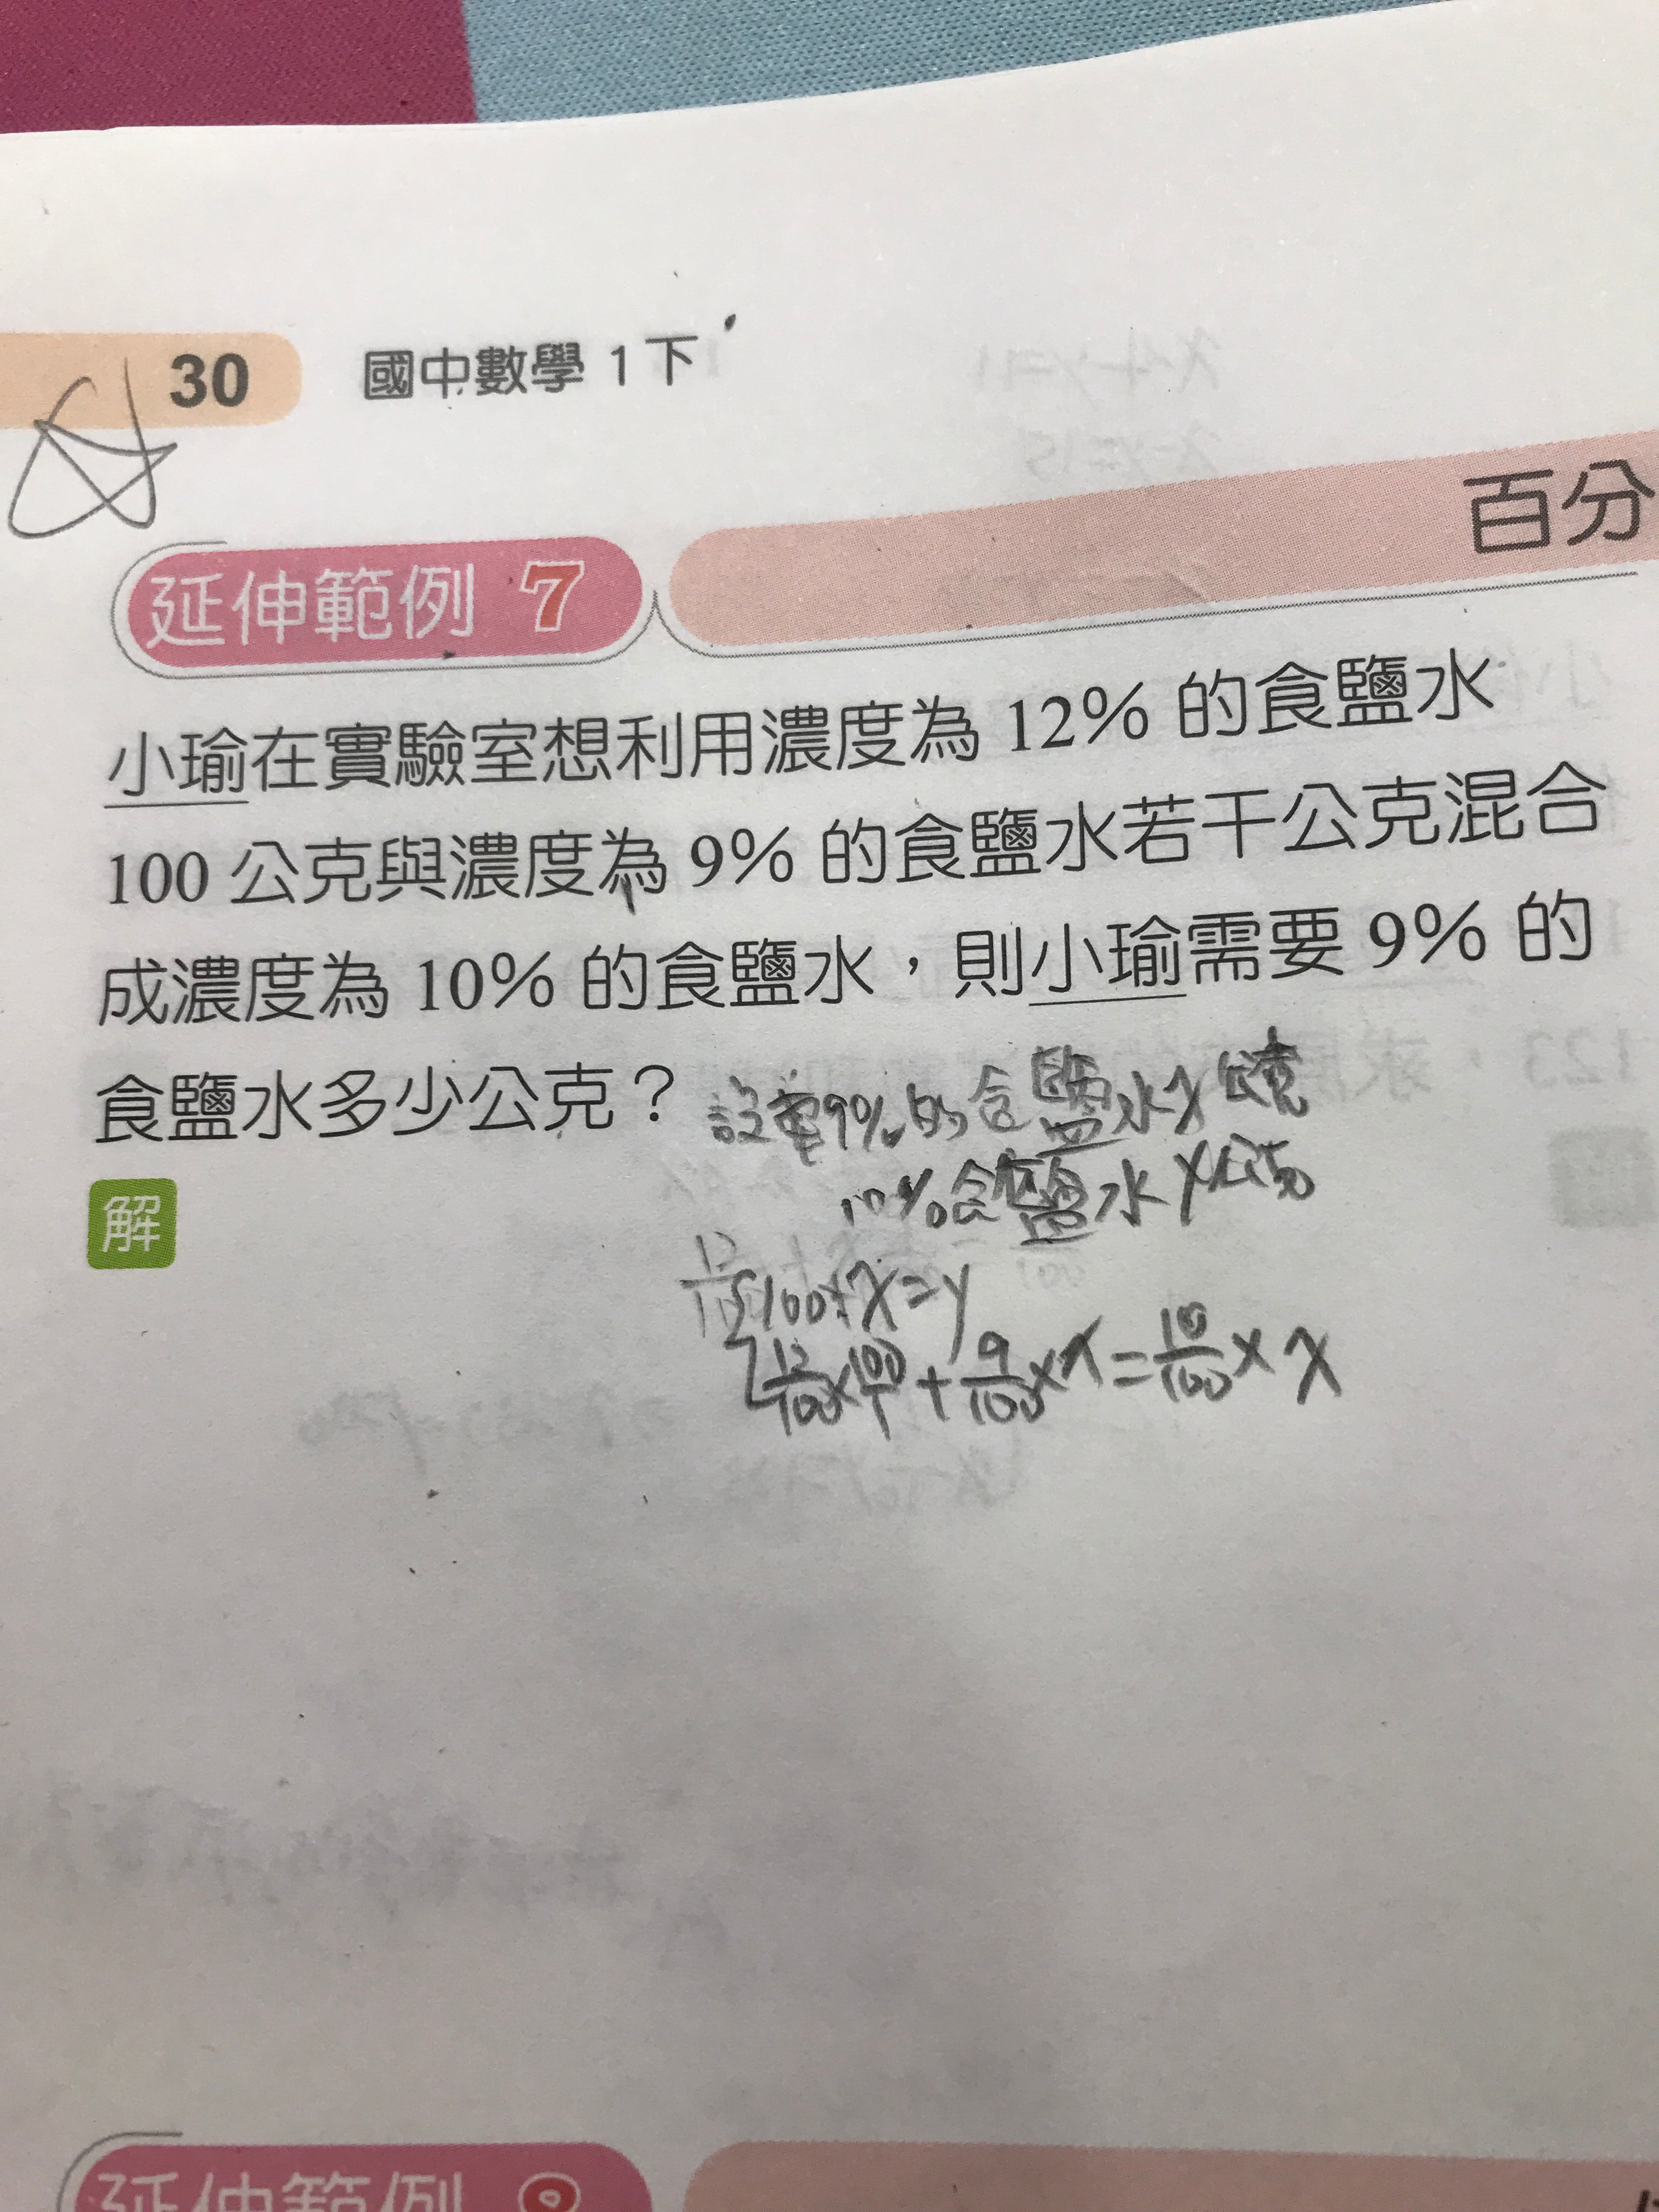 30 國中數學 1 下
百分
延伸範例 7
小瑜在實驗室想利用濃度為 12% 的食鹽水
100 公克與濃度為 9% 的食鹽水若干公克混合
成濃度為 10% 的食鹽水，則小瑜需要 9% 的
食鹽水多少公克？
設需9%的食鹽水x公克
10%食鹽水y公克
解
100+x=y
12/100×100/1+9/100×x=10/100×x
延伸範例 8